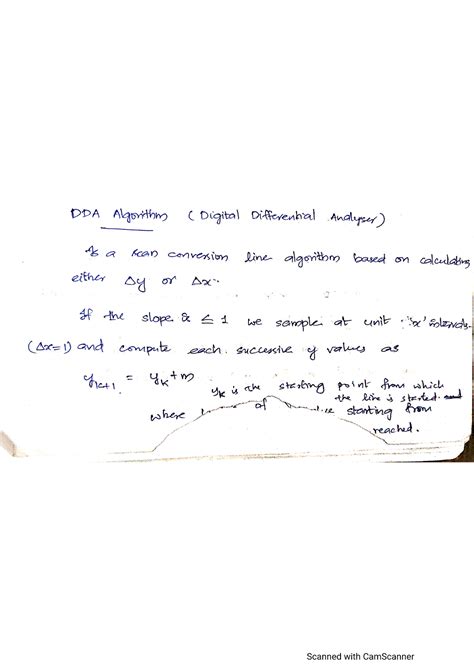 DDA Algorithm (Digital Differential Analyser)
Is a scan conversion line algorithm based on calculating
either Δy or Δx.
If the slope is ≤ 1 we sample at unit 'x' intervals
(Δx=1) and compute each successive y values as
yk+1 = yk+m
yk is the starting point from which
the line is started
where of starting from
reached.
Scanned with CamScanner